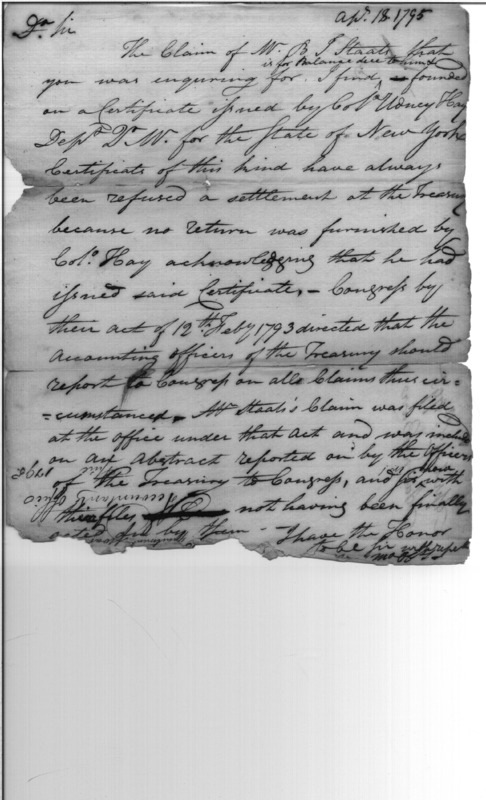 Apl. 18. 1795
Dr. Sir
The Claim of Mr. B J Staats that
is for balance due to him &
you was enquiring for I find, founded
on a Certificate issued by Colo. Udney Hay
Depy. Qr. Mr. for the State of New York
Certificate of this kind have always
been refused a settlement at the Treasury
because no return was furnished by
Colo. Hay acknowledging that he had
issued said Certificate, - Congress by
their act of 12th. Feby 1793 directed that the
Accounting officers of the Treasury should
report to Congress on all Claims thus cir=
=cumstanced. Mr Staats's Claim was filed
at the office under that Act and was includ
on an Abstract reported on by the Officers
of the Treasury to Congress, and is now with
their files, not having been finally
acted on by them - I have the Honor
to be Sir with respect